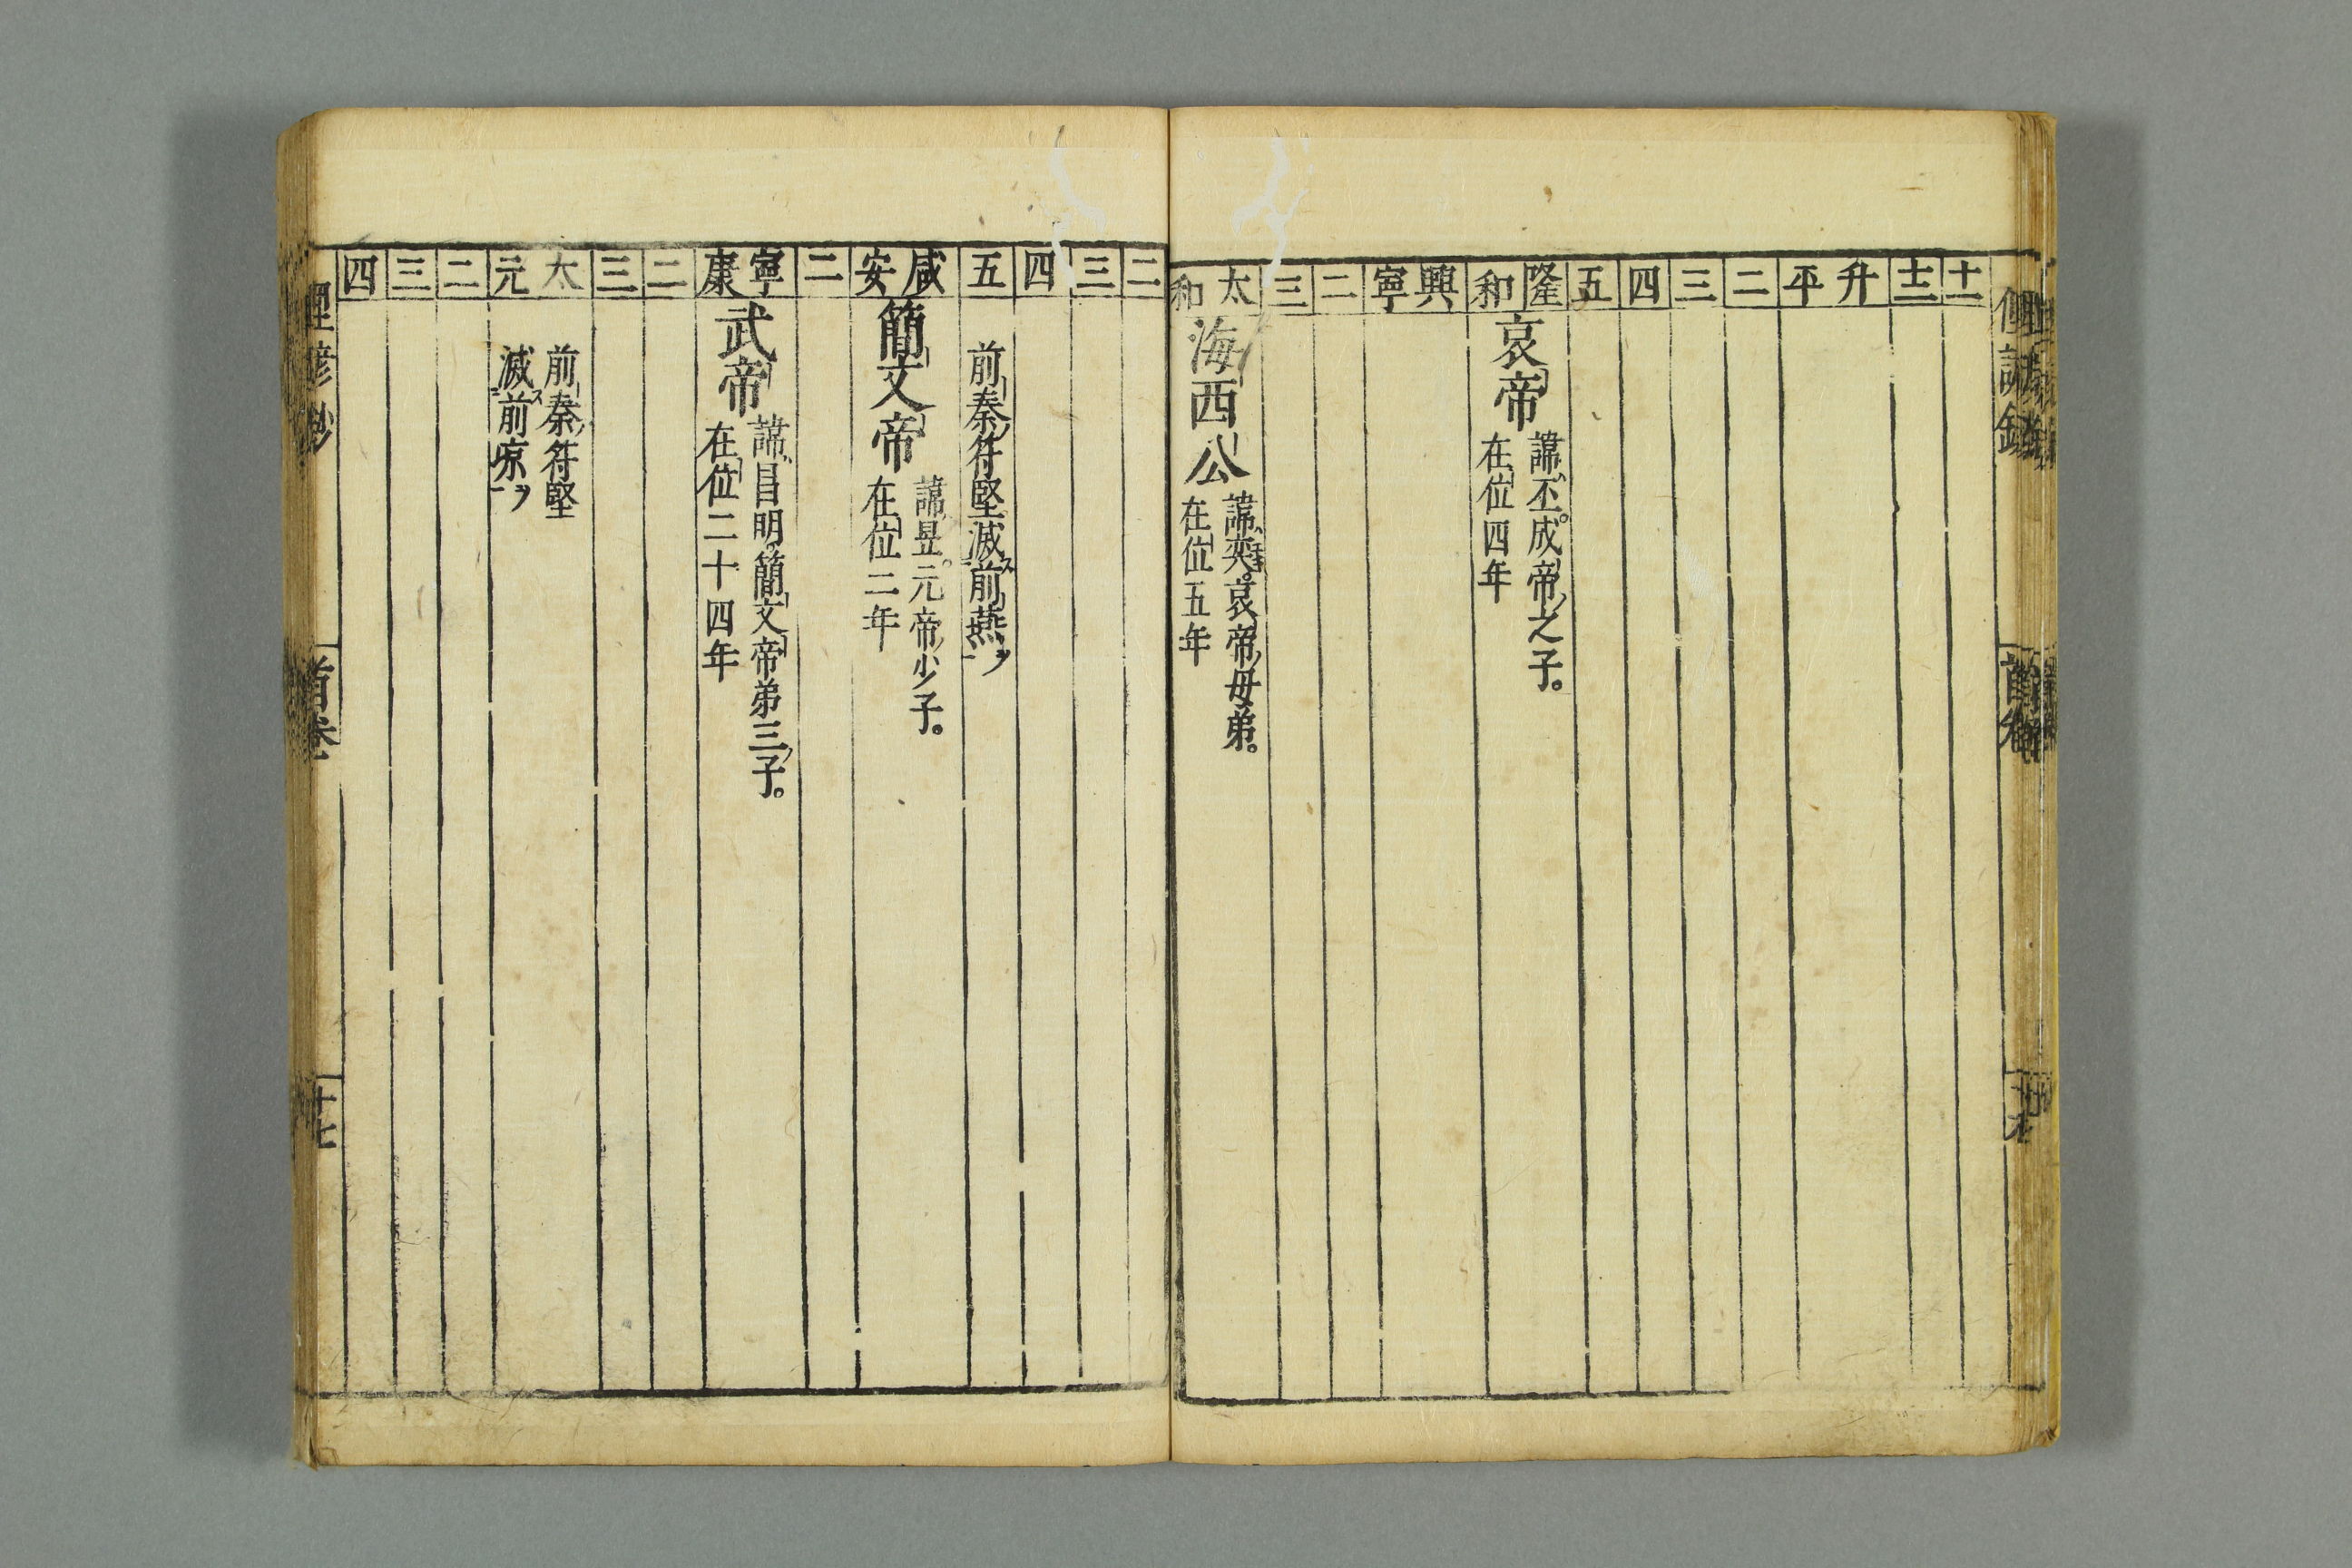 十一
十二
升平
二
三
四
五
隆和
哀帝
諱丕。成帝ノ之子。
在位四年
興寧
二
三
太和
海西公
諱奕。哀帝ノ母弟。
在位五年
二
三
四
五
前秦ノ符堅滅ス前燕ヲ
咸安
簡文帝
諱昱。元帝ノ少子。
在位二年
二
寧康
武帝
諱昌明簡文帝弟三ノ子。
在位二十四年
二
三
太元
前秦ノ符堅
滅ス前凉ヲ
二
三
四
首卷
十七